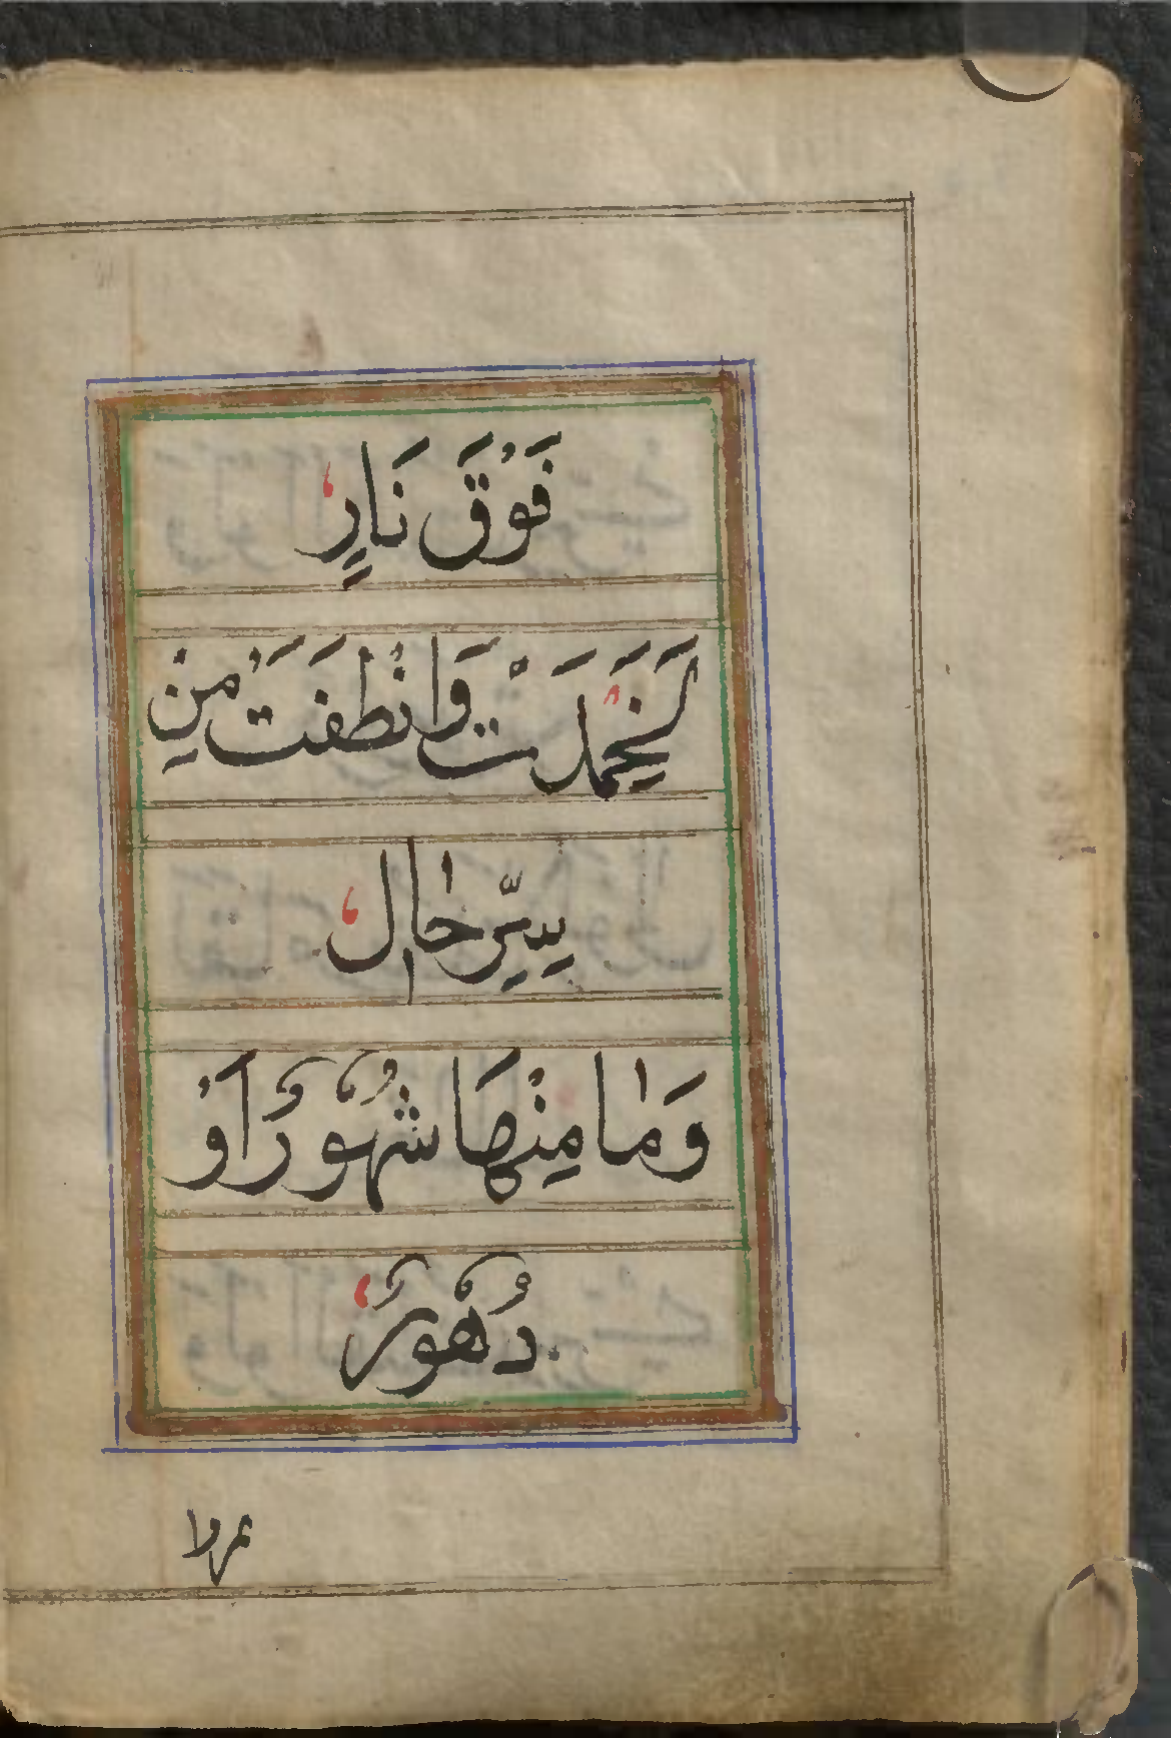 فَوْقَ نَارِ
لَخَمِدَتْ وَانْطَفَتْ مِنْ
سِرِّ حَالِ
وَمَا مِنْهَا شُهُورٌ اَوْ
دُهُورٌ